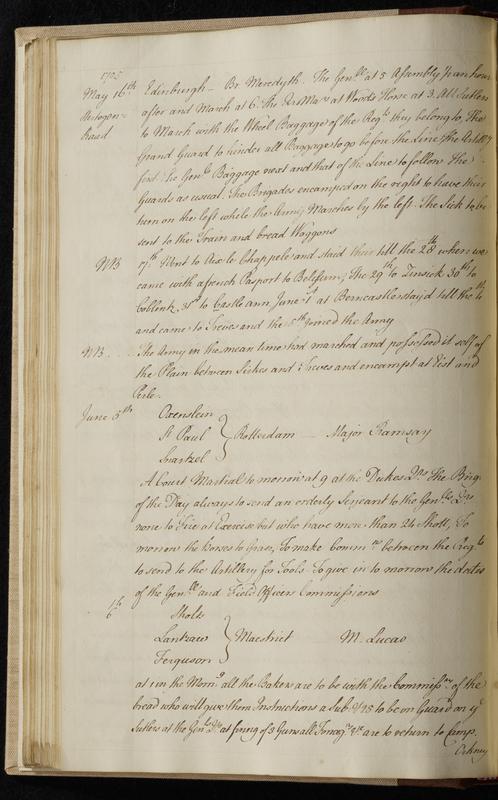 1705
May 16th Edinburgh - Br. Meredyth. The Genll at 5 Assembly ½ an hour
after and March at 6: the Qrs Mars at Woods Horse at 3. All Sutlers
to March with the Wheel Baggage of the Regts they belong to, The
Grand Guard to hinder all Baggage to go before the Line; the Artilly
first the Genls Baggage next and that of the Line to follow the
Guards as usual. The Brigades encamped on the right to have their
turn on the left while the Army Marches by the left. The Sick to be
sent to the Train and bread Waggons
NB 17th Went to Aix la Chappele and staid their till the 28th when we
came with a french Pasport to The 29th to Sinsick 30th to
Coblentz, 31st to Castleaun June 1st at Berncastle stay'd till the 4th
and came to Treves and the 5th joined the Army
NB . . . The Army in the mean time had marched and possessed it self of
the Plain between Sirkes and Treves and encampt at Eist and
Perle.
June 5th Oxenstein
St Paul } Rotterdam — Major Ramsay
Swartzel
A Court Martial to morrow at 9 at the Dukes Qrs The Brig.
of the Day always to send an orderly Serjeant to the Genls Qrs
none to Fire at Exercise but who have more than 24 Shott, To
morrow the horses to Grass, To make comm:n between the Regts
to send to the Artillery for Tools To give in to morrow the dates
of the Genlls and Field Officers Commissions
6 Sholts
Lantzaw } Maestrict M. Lucas
Ferguson
at 1 in the Morng all the Bakers are to be with the Commissry of the
bread who will give them Instructions a Sub. & 25 to be on Guard on ye
Sutlers at the Genls Qrs at firing of 3 Guns all &c are to return to Camp.
Orkney